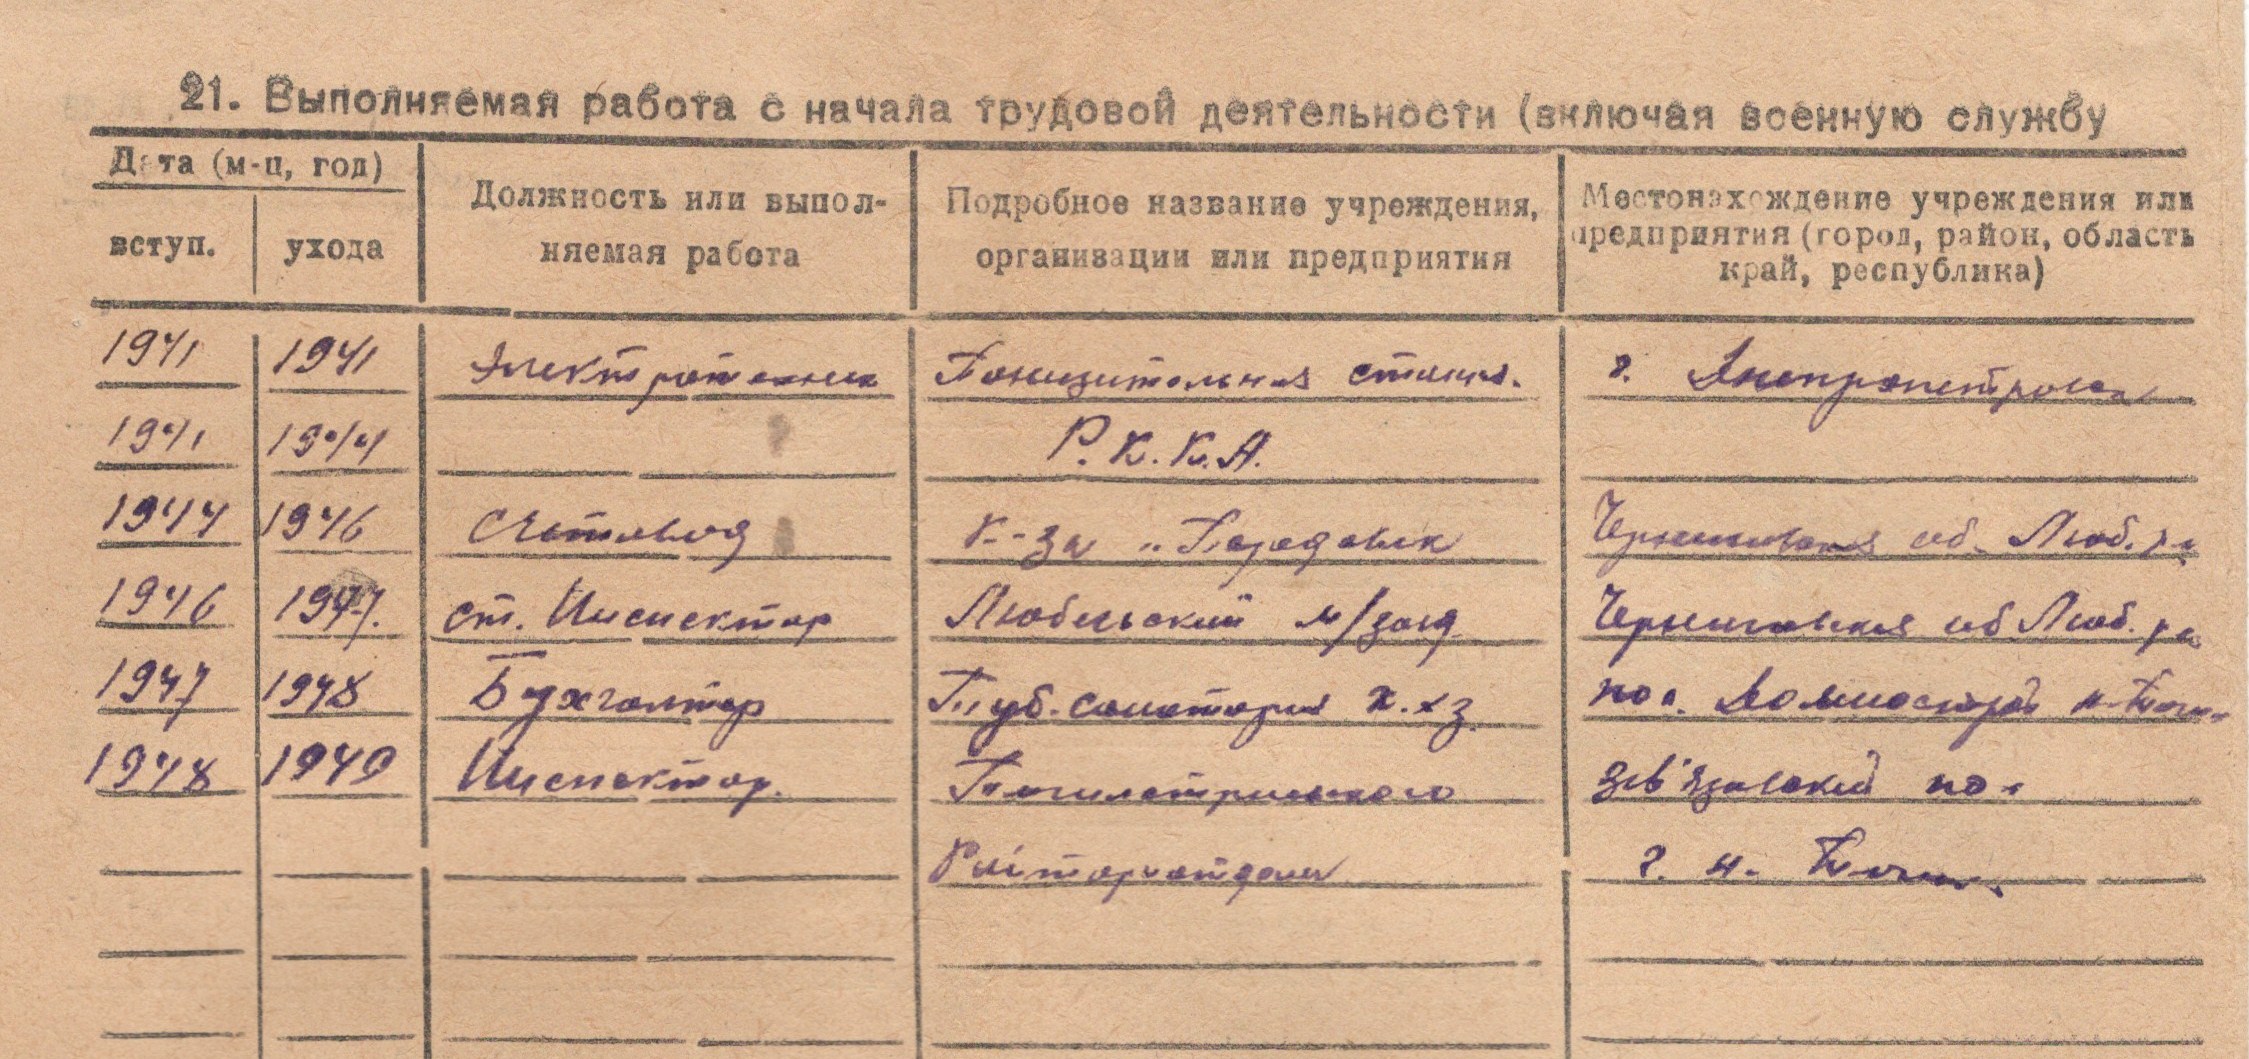 21. Выполняемая работа с начала трудовой деятельности (включая военную службу
Дата (м-ц, год)
вступ. ухода
Должность или выпол-
няемая работа
Подробное название учреждения,
организации или предприятия
Местонахождение учреждения или
предприятия (город, район, область
край, республика)
1941 1941 Электротехник Понизительная станц. г. Днепропетровск
1941 1944 Р.К.К.А.
1944 1946 Счетовод к-за "Передовик Черниговская об. Люб. р-н
1946 1947. ст. Инспектор Любечский Черниговская об Люб. р-н
1947 1948 Бухгалтер Туб. санатория пос.
1948 1949 Инспектор.
г. н.